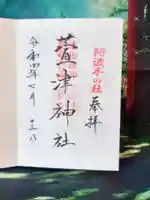 阿波手の杜
奉拝
萱津神社
令和四年七月